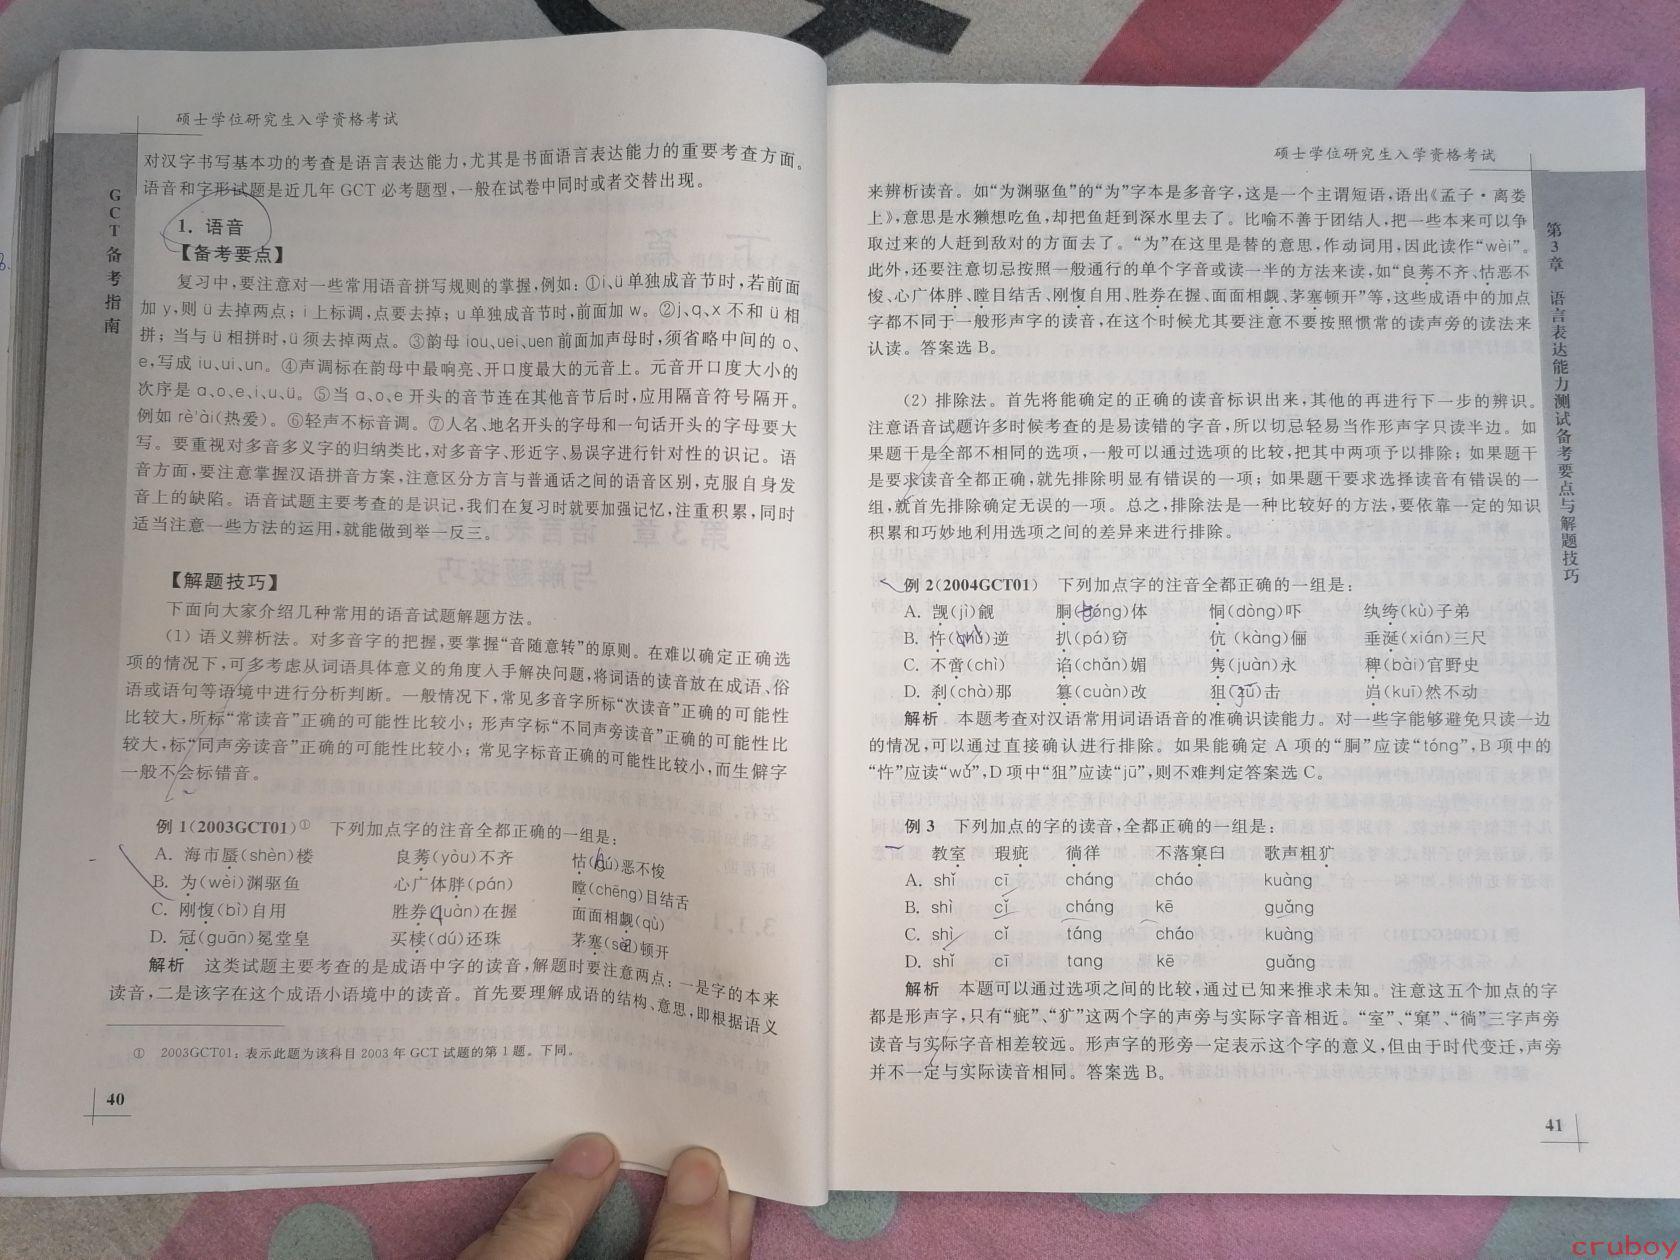 硕士学位研究生入学资格考试
GCT备考指南
对汉字书写基本功的考查是语言表达能力,尤其是书面语言表达能力的重要考查方面。
语音和字形试题是近几年 GCT 必考题型,一般在试卷中同时或者交替出现。
1. 语音
【备考要点】
复习中,要注意对一些常用语音拼写规则的掌握,例如:①i、ü单独成音节时,若前面
加 y,则 ü 去掉两点;i 上标调,点要去掉;u 单独成音节时,前面加 w。②j、q、x 不和 ü 相
拼;当与 ü 相拼时,ü 须去掉两点。③韵母 iou、uei、uen 前面加声母时,须省略中间的 o、
e,写成 iu、ui、un。④声调标在韵母中最响亮、开口度最大的元音上。元音开口度大小的
次序是 a、o、e、i、u、ü。⑤当 a、o、e 开头的音节连在其他音节后时,应用隔音符号隔开。
例如 rè'ài(热爱)。⑥轻声不标音调。⑦人名、地名开头的字母和一句话开头的字母要大
写。要重视对多音多义字的归纳类比,对多音字、形近字、易误字进行针对性的识记。语
音方面,要注意掌握汉语拼音方案,注意区分方言与普通话之间的语音区别,克服自身发
音上的缺陷。语音试题主要考查的是识记,我们在复习时就要加强记忆,注重积累,同时
适当注意一些方法的运用,就能做到举一反三。
【解题技巧】
下面向大家介绍几种常用的语音试题解题方法。
(1) 语义辨析法。对多音字的把握,要掌握“音随意转”的原则。在难以确定正确选
项的情况下,可多考虑从词语具体意义的角度入手解决问题,将词语的读音放在成语、俗
语或语句等语境中进行分析判断。一般情况下,常见多音字所标“次读音”正确的可能性
比较大,所标“常读音”正确的可能性比较小;形声字标“不同声旁读音”正确的可能性比
较大,标“同声旁读音”正确的可能性比较小;常见字标音正确的可能性比较小,而生僻字
一般不会标错音。
例 1(2003GCT01)① 下列加点字的注音全都正确的一组是:
A. 海市蜃(shèn)楼 良莠(yòu)不齐 怙(ú)恶不悛
B. 为(wèi)渊驱鱼 心广体胖(pán) 瞠(chēng)目结舌
C. 刚愎(bì)自用 胜券(uàn)在握 面面相觑(qù)
D. 冠(guān)冕堂皇 买椟(dú)还珠 茅塞(sè)顿开
解析 这类试题主要考查的是成语中字的读音,解题时要注意两点:一是字的本来
读音,二是该字在这个成语小语境中的读音。首先要理解成语的结构、意思,即根据语义
① 2003GCT01:表示此题为该科目 2003 年 GCT 试题的第 1 题。下同。
40
硕士学位研究生入学资格考试
第3章 语言表达能力测试备考要点与解题技巧
来辨析读音。如“为渊驱鱼”的“为”字本是多音字,这是一个主谓短语,语出《孟子·离娄
上》,意思是水獭想吃鱼,却把鱼赶到深水里去了。比喻不善于团结人,把一些本来可以争
取过来的人赶到敌对的方面去了。“为”在这里是替的意思,作动词用,因此读作“wèi”。
此外,还要注意切忌按照一般通行的单个字音或读一半的方法来读,如“良莠不齐、怙恶不
悛、心广体胖、瞠目结舌、刚愎自用、胜券在握、面面相觑、茅塞顿开”等,这些成语中的加点
字都不同于一般形声字的读音,在这个时候尤其要注意不要按照惯常的读声旁的读法来
认读。答案选 B。
(2) 排除法。首先将能确定的正确的读音标识出来,其他的再进行下一步的辨识。
注意语音试题许多时候考查的是易读错的字音,所以切忌轻易当作形声字只读半边。如
果题干是全部不相同的选项,一般可以通过选项的比较,把其中两项予以排除;如果题干
是要求读音全都正确,就先排除明显有错误的一项;如果题干要求选择读音有错误的一
组,就首先排除确定无误的一项。总之,排除法是一种比较好的方法,要依靠一定的知识
积累和巧妙地利用选项之间的差异来进行排除。
例 2(2004GCT01) 下列加点字的注音全都正确的一组是:
A. 觊(jì)觎 胴(óng)体 恫(dòng)吓 纨绔(kù)子弟
B. 忤()逆 扒(pá)窃 伉(kàng)俪 垂涎(xián)三尺
C. 不啻(chì) 谄(chǎn)媚 隽(juàn)永 稗(bài)官野史
D. 刹(chà)那 篡(cuàn)改 狙(zū)击 岿(kuī)然不动
解析 本题考查对汉语常用词语语音的准确识读能力。对一些字能够避免只读一边
的情况,可以通过直接确认进行排除。如果能确定 A 项的“胴”应读“tóng”,B 项中的
“忤”应读“wǔ”,D 项中“狙”应读“jū”,则不难判定答案选 C。
例 3 下列加点的字的读音,全都正确的一组是:
教室 瑕疵 徜徉 不落窠臼 歌声粗犷
A. shǐ cī cháng cháo kuàng
B. shì cǐ cháng kē guǎng
C. shì cǐ táng cháo kuàng
D. shǐ cī tang kē guǎng
解析 本题可以通过选项之间的比较,通过已知来推求未知。注意这五个加点的字
都是形声字,只有“疵”、“犷”这两个字的声旁与实际字音相近。“室”、“窠”、“徜”三字声旁
读音与实际字音相差较远。形声字的形旁一定表示这个字的意义,但由于时代变迁,声旁
并不一定与实际读音相同。答案选 B。
41
cruboy